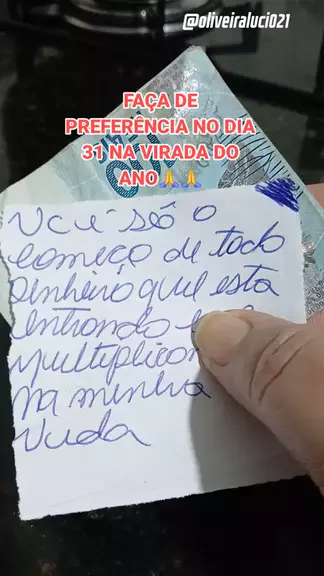 @oliveiraluci021
FAÇA DE
PREFERÊNCIA NO DIA
31 NA VIRADA DO
ANO🙏🙏
Você só o
começo de todo
dinheiro que esta
entrando
multiplican
na minha
vida